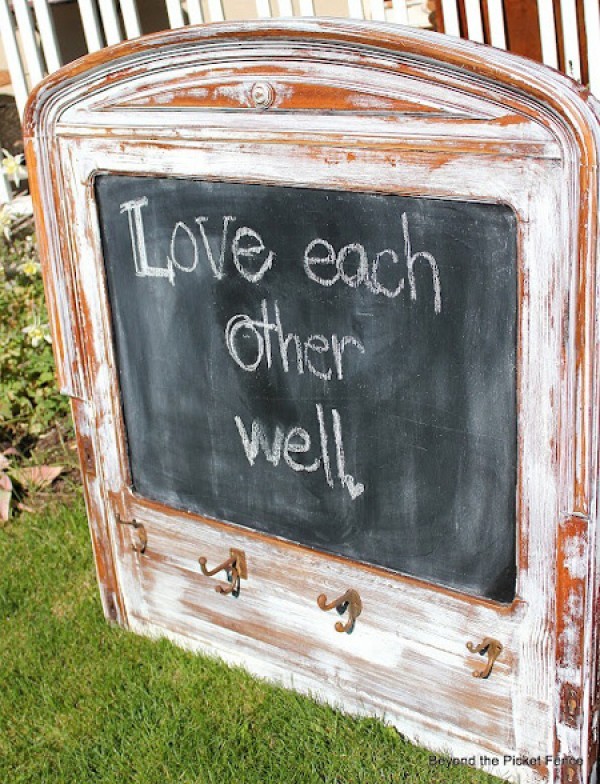 Love each
other
well.
Beyond the Picket Fence